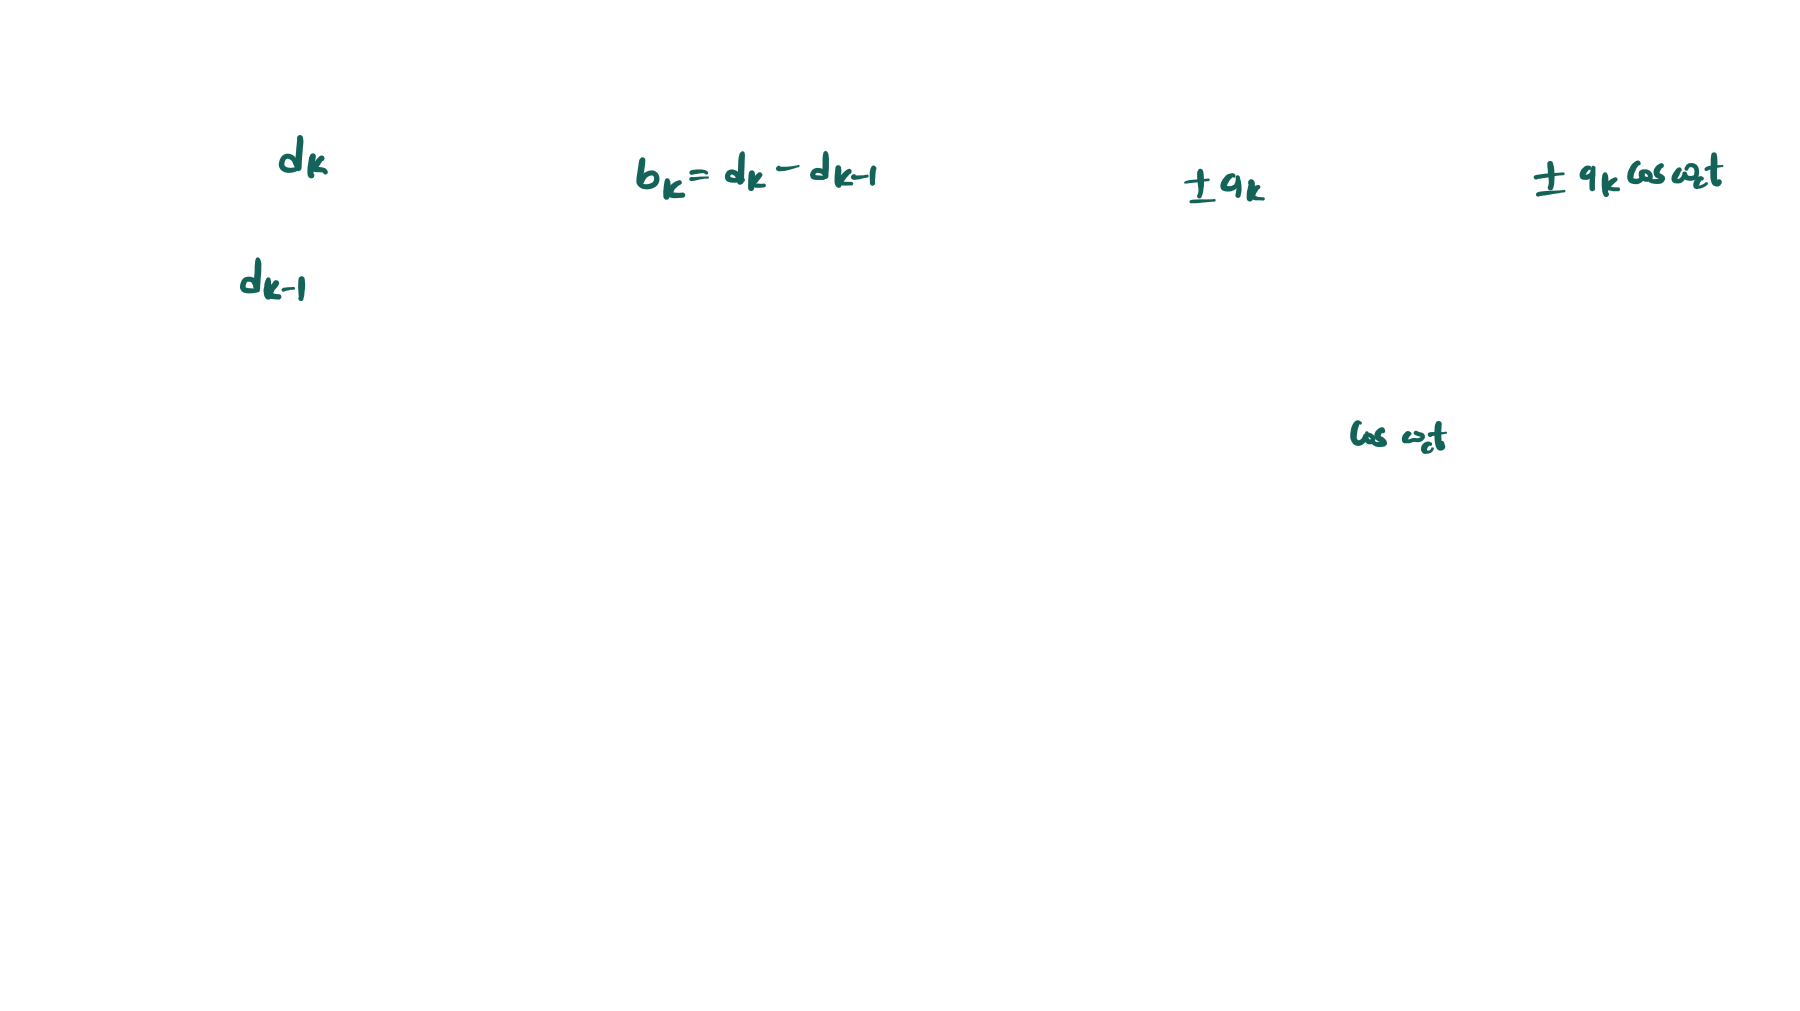 dk bk = dk − dk−1 ± ak ± ak cos ωct
dk−1
cos ωct